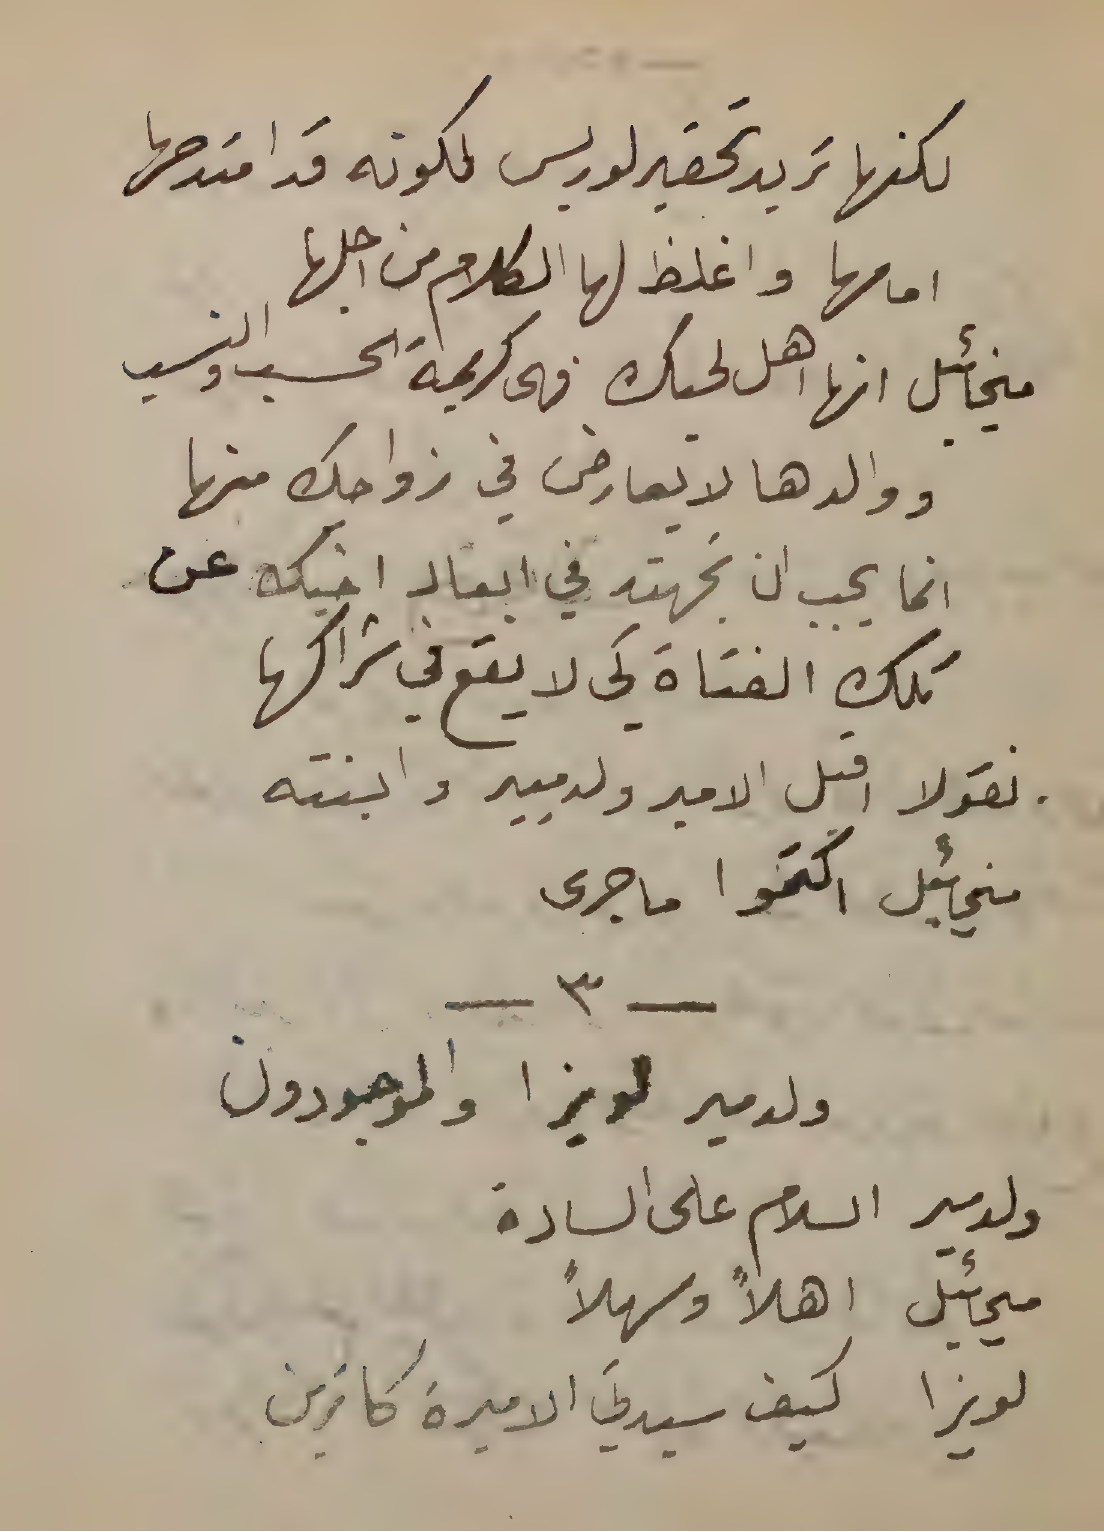 لكنها تريد تحقير لوريس لكونه قد امتدحها
امامها واغلظ لها الكلام من اجلها
ميخائيل انها اهل لحبك فهى كريمة الحسب والنسب
ووالدها لا يعارض في زواجك منها
انما يجب ان تجتهد في ابعاد اخيك عن
تلك الفتاة لكى لا يقع في شراكها
نقولا اقبل الامير ولدمير وابنته
ميخائيل اكتموا ما جرى
— ٣ —
ولدمير لويزا والموجودون
ولدمير السلام على السادة
ميخائيل اهلاً وسهلاً
لويزا كيف سيدتي الاميرة كاترين